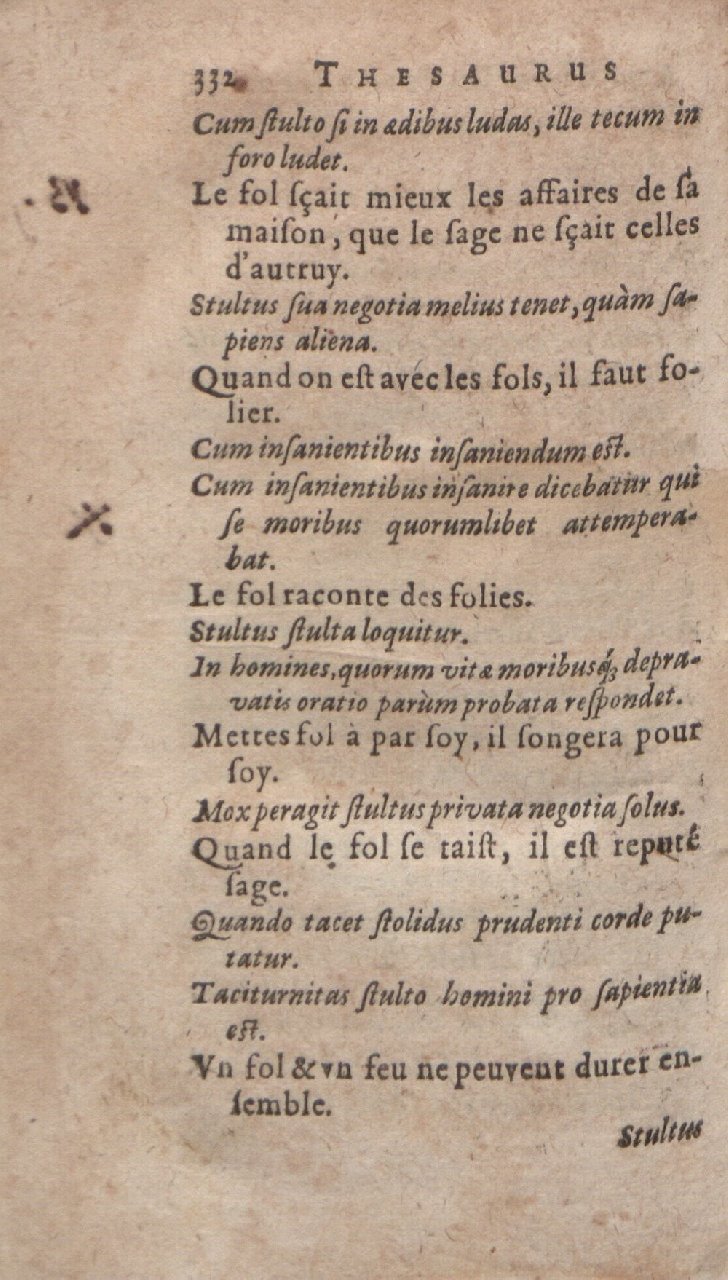 332 THESAURUS
Cum ſtulto ſi in ædibus ludas, ille tecum in
foro ludet.
Le fol ſçait mieux les affaires de ſa
maiſon, que le ſage ne ſçait celles
d'autruy.
Stultus ſua negotia melius tenet, quàm ſa-
piens aliena.
Quand on eſt avéc les fols, il faut fo-
lier.
Cum inſanientibus inſaniendum eſt.
Cum inſanientibus inſanire dicebatur qui
ſe moribus quorumlibet attempera-
bat.
Le fol raconte des folies.
Stultus ſtulta loquitur.
In homines, quorum vitæ moribusq́; depra-
vatis oratio parùm probata reſpondet.
Mettes fol à par ſoy, il ſongera pour
ſoy.
Mox peragit ſtultus privata negotia ſolus.
Quand le fol ſe taiſt, il eſt reputé
ſage.
Quando tacet ſtolidus prudenti corde pu-
tatur.
Taciturnitas ſtulto homini pro ſapientia
eſt.
Vn fol & vn feu ne peuvent durer en-
ſemble.
Stultus